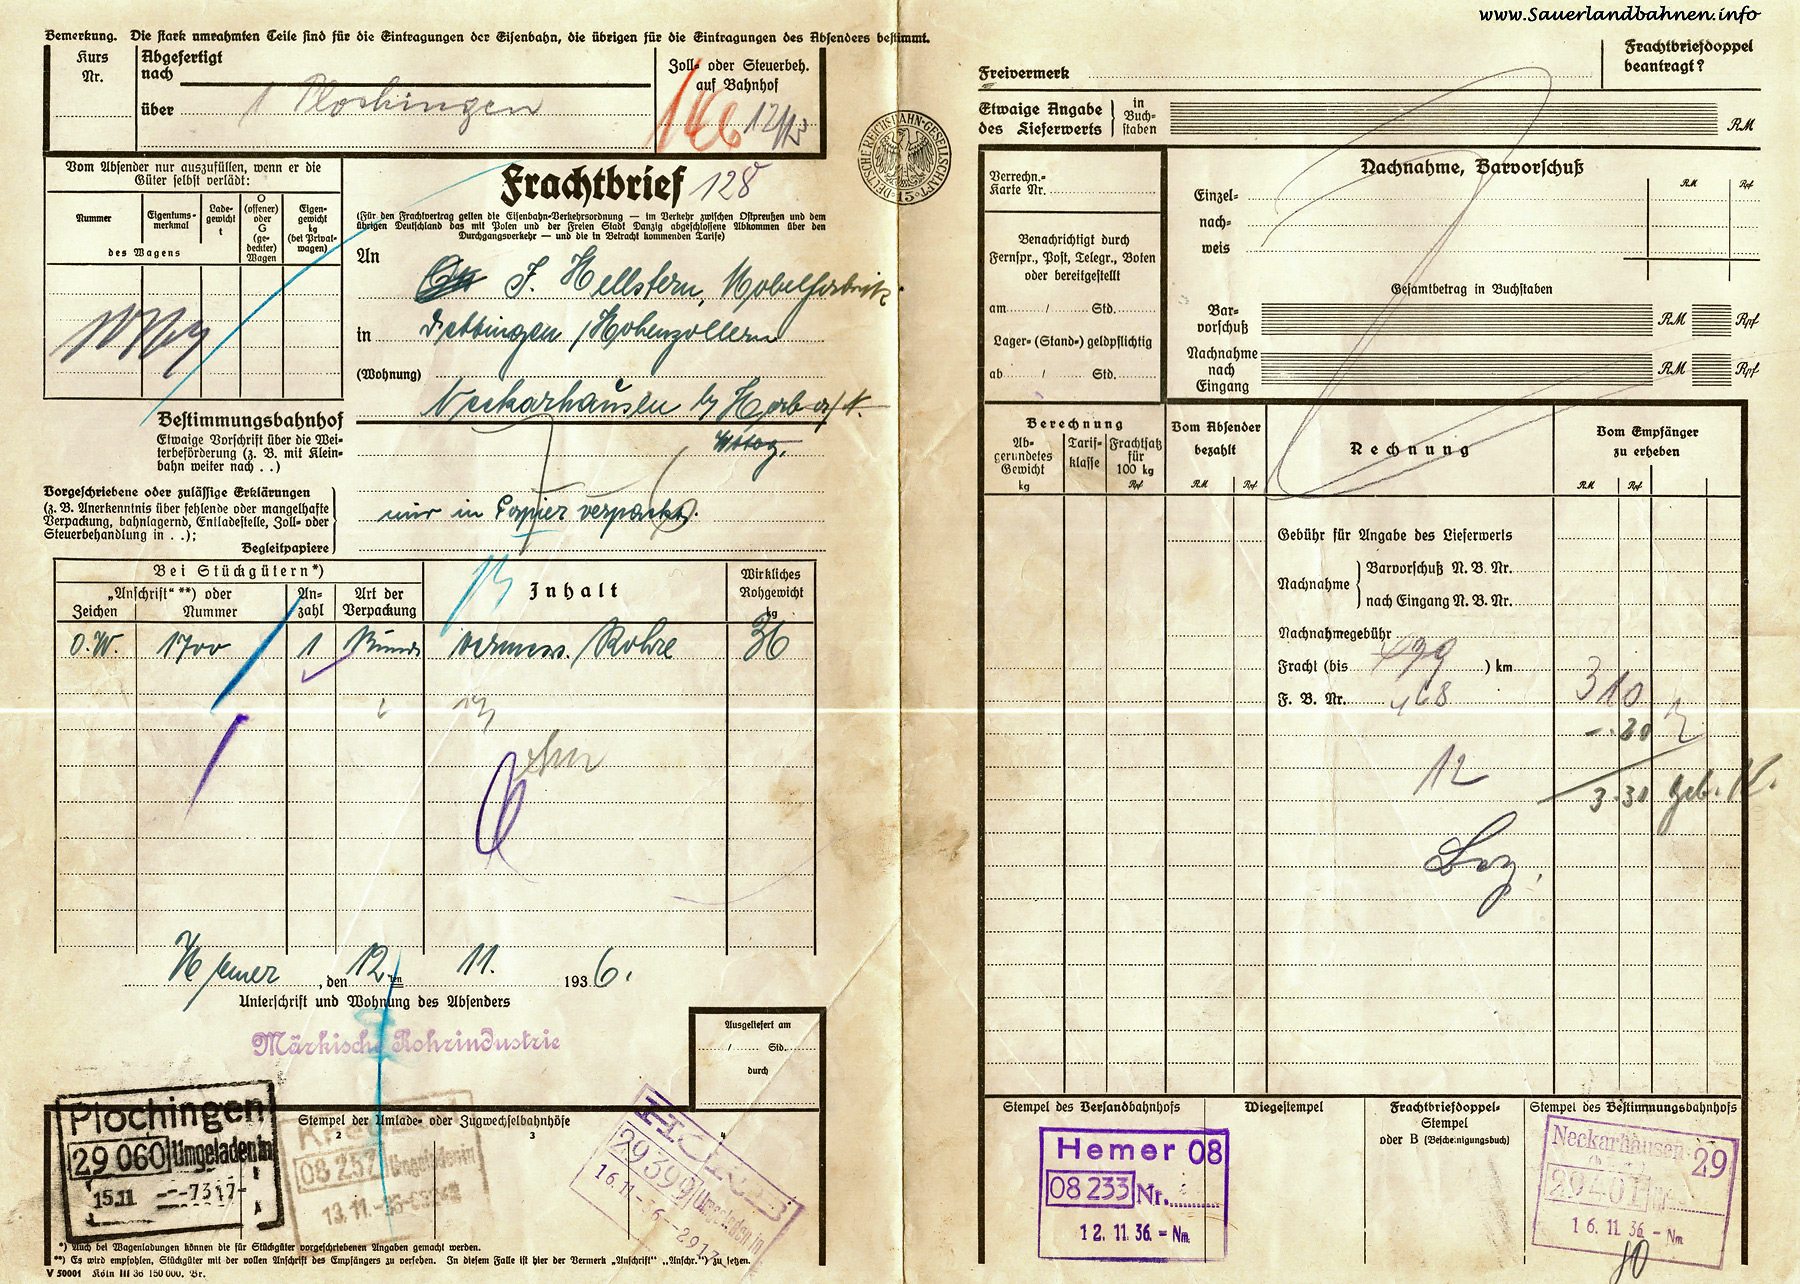 www.Sauerlandbahnen.info
Bemerkung. Die stark umrahmten Teile sind für die Eintragungen der Eisenbahn, die übrigen für die Eintragungen des Absenders bestimmt.
Kurs Nr.
Abgefertigt nach
über
1 Plochingen
Zoll- oder Steuerbeh. auf Bahnhof
Vom Absender nur auszufüllen, wenn er die Güter selbst verlädt:
Nummer
Eigentums-merkmal
des Wagens
Lade-gewicht t
O (offener) oder G (ge-deckter) Wagen
Eigen-gewicht kg (bei Privat-wagen)
Frachtbrief 128
(Für den Frachtvertrag gelten die Eisenbahn-Verkehrsordnung — im Verkehr zwischen Ostpreußen und dem
übrigen Deutschland das mit Polen und der Freien Stadt Danzig abgeschlossene Abkommen über den
Durchgangsverkehr — und die in Betracht kommenden Tarife)
DEUTSCHE REICHSBAHN-GESELLSCHAFT
15
An
J. Hellstern, Möbelfabrik
in
Dettingen /Hohenzollern
(Wohnung)
Bestimmungsbahnhof
Neckarhausen b/ Horb a/N.
Etwaige Vorschrift über die Wei-
terbeförderung (z. B. mit Klein-
bahn weiter nach . .)
Vorgeschriebene oder zulässige Erklärungen
(z. B. Anerkenntnis über fehlende oder mangelhafte
Verpackung, bahnlagernd, Entladestelle, Zoll- oder
Steuerbehandlung in . .);
Begleitpapiere
nur in Papier verpackt.
Bei Stückgütern*)
„Anschrift“ **) oder
Zeichen
Nummer
An-zahl
Art der Verpackung
Inhalt
Wirkliches Rohgewicht kg
O.W. 1700 1 Bund Rohre 36
Hemer, den 12.ten 11. 1936.
Unterschrift und Wohnung des Absenders
Märkische Rohrindustrie
Ausgeliefert am
/ Std.
durch
Stempel der Umlade- oder Zugwechselbahnhöfe
2
3
4
Plochingen
29 060 Umgeladen in
15.11 --7317-
08 257 Umgeladen in
13. 11.
HORB
29 399 Umgeladen in
16.11.
*) Auch bei Wagenladungen können die für Stückgüter vorgeschriebenen Angaben gemacht werden.
**) Es wird empfohlen, Stückgüter mit der vollen Anschrift des Empfängers zu versehen. In diesem Falle ist hier der Vermerk „Anschrift“ „Anschr.“) zu setzen.
V 50001 Köln III 36 150 000. Br.
Freivermerk
Frachtbriefdoppel beantragt?
Etwaige Angabe des Lieferwerts
in Buch-staben
RM
Verrechn.-
Karte Nr.
Benachrichtigt durch
Fernspr., Post, Telegr., Boten
oder bereitgestellt
am / Std.
Lager- (Stand-) geldpflichtig
ab / Std.
Nachnahme, Barvorschuß
RM
Rpf
Einzel-
nach-
weis
Gesamtbetrag in Buchstaben
Bar-vorschuß
RM
Rpf
Nachnahme nach Eingang
RM
Rpf
Berechnung
Ab-gerundetes Gewicht kg
Tarif-klasse
Frachtsatz für 100 kg
Rpf
Vom Absender bezahlt
RM
Rpf
Rechnung
Vom Empfänger zu erheben
RM
Rpf
Gebühr für Angabe des Lieferwerts
Nachnahme
Barvorschuß N. B. Nr.
nach Eingang N. B. Nr.
Nachnahmegebühr
Fracht (bis ) km
310
F. B. Nr.
-.20
12
3.30
Stempel des Versandbahnhofs
Wiegestempel
Frachtbriefdoppel-
Stempel
oder B (Bescheinigungsbuch)
Stempel des Bestimmungsbahnhofs
Hemer 08
08 233 Nr.
12. 11. 36. - Nm.
Neckarhausen 29
29 401 Nr.
16. 11. 36. - Nm
10